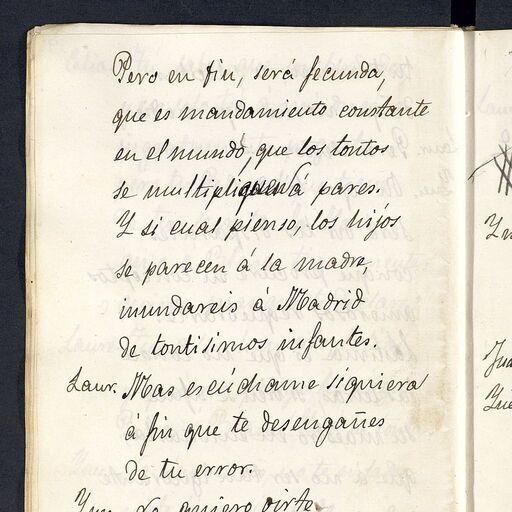 Pero en fin, será fecunda,
que es mandamiento constante
en el mundo, que los tontos
se multipliquen á pares.
Y si cual pienso, los hijos
se parecen á la madre,
inundareis á Madrid
de tontisimos infantes.
Laur. Mas escúchame siquiera
á fin que te desengañes
de tu error.
quiero oirte